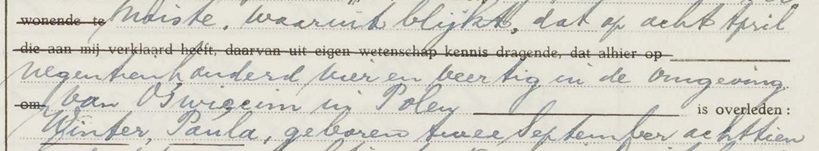 wonende te Moiste, waaruit blijkt, dat op acht April
die aan mij verklaard heeft, daarvan uit eigen wetenschap kennis dragende, dat alhier op
negentienhonderd vier en veertig in de omgeving
om van Oswiecim in Polen is overleden:
Winter, Paula, geboren twee September achttien